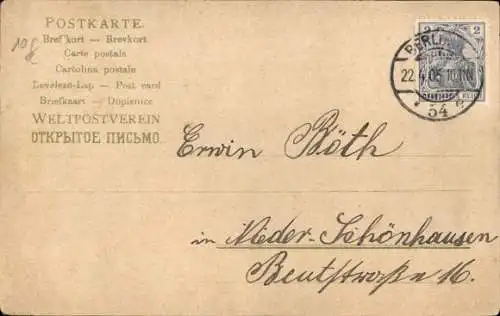 POSTKARTE.
Brefkort — Brevkort
Carte postale
Cartolina postale
Levelező-Lap — Post card
Briefkaart — Dopisnice
WELTPOSTVEREIN
ОТКРЫТОЕ ПИСЬМО.
10
2 2
BERLIN
22.4.05
54 e
Erwin Röth
in Nieder-Schönhausen
Beutstraße 16.